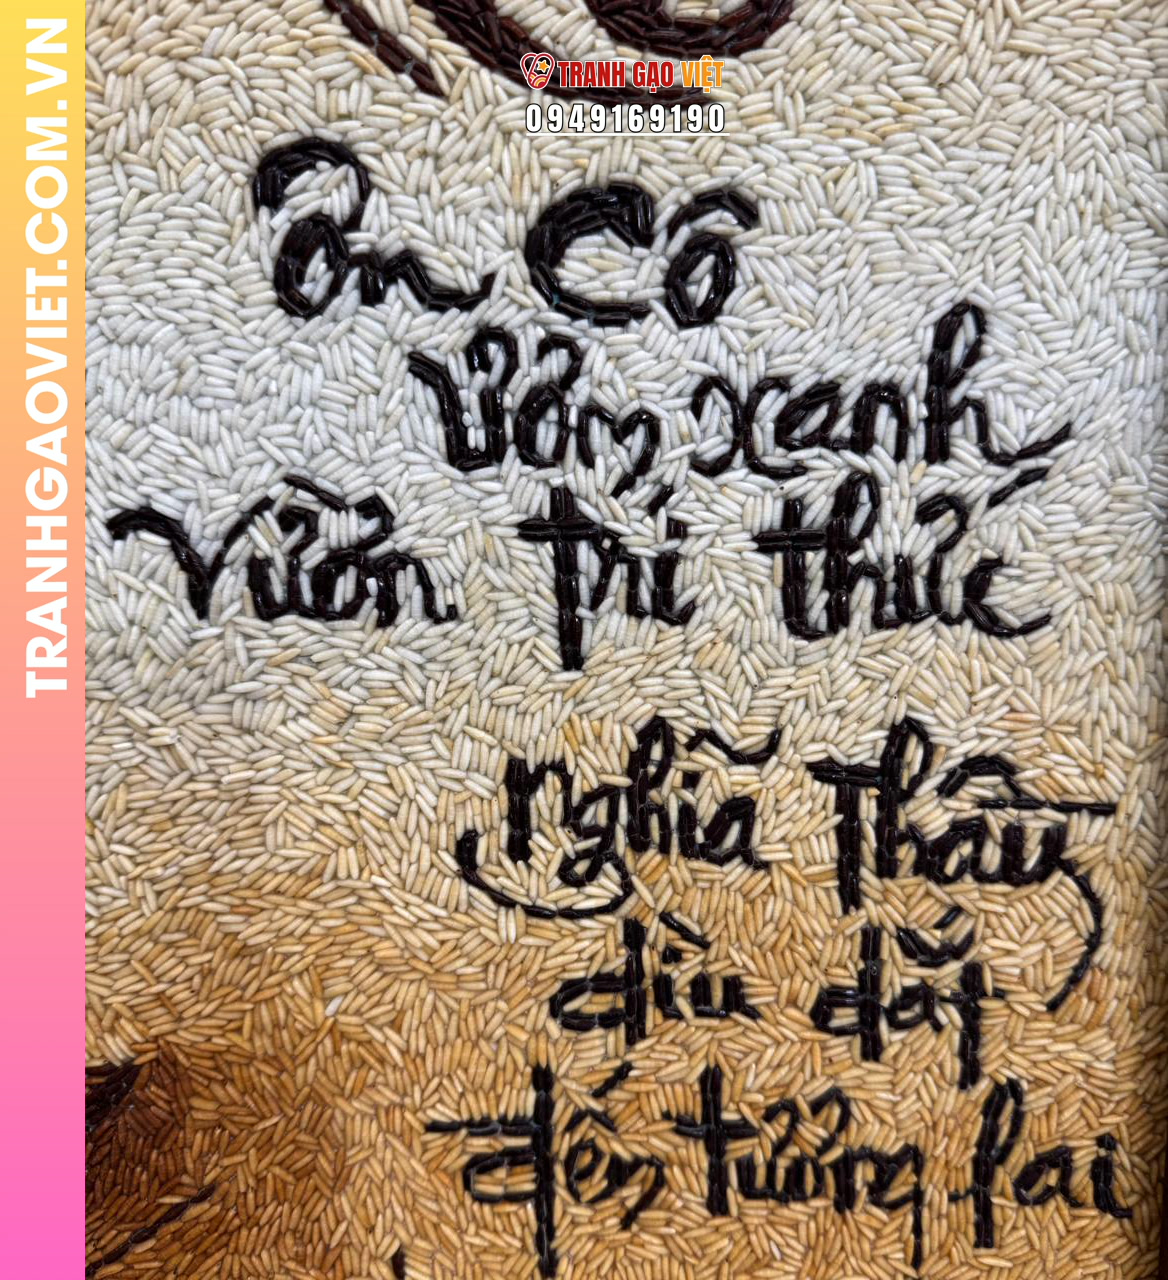 TRANHGAOVIET.COM.VN
TRANH GẠO VIỆT
0949169190
Ơn Cô
Vòm xanh
Vườn tri thức
Nghĩa Thầy
dìu dắt
đến tương lai